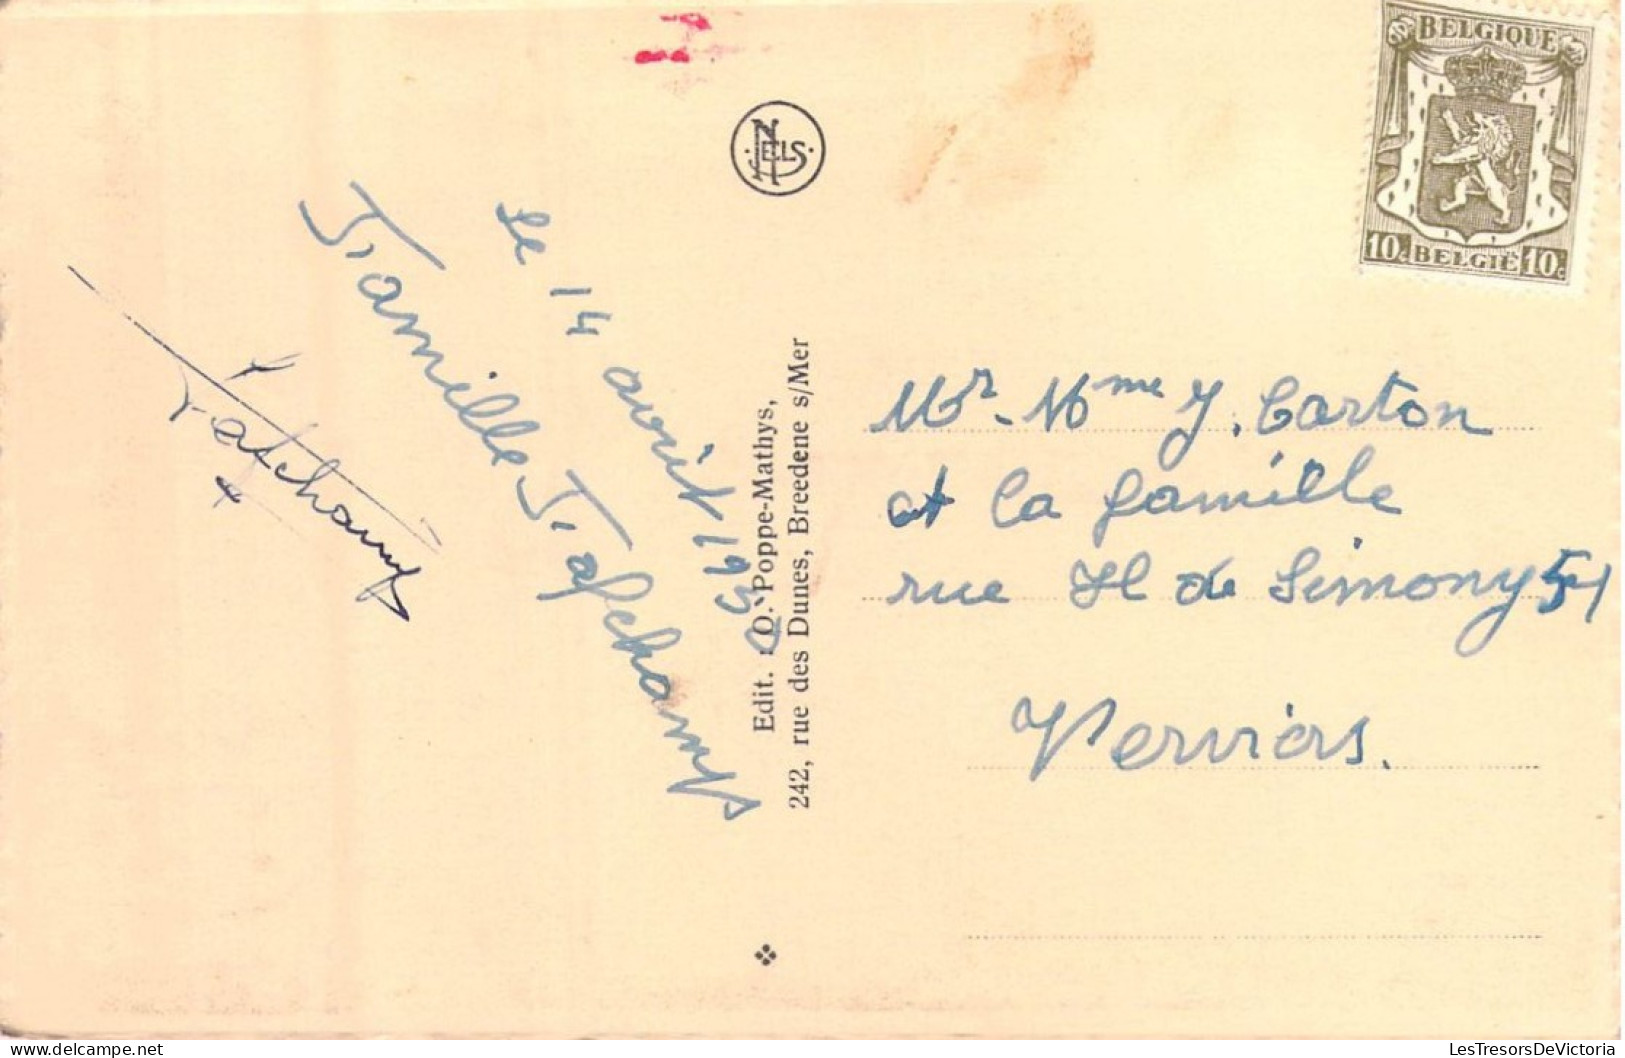 le 14 avril 1950
Famille Fafchamps
Fafchamps
NELS
Edit. : O. Poppe-Mathys,
242, rue des Dunes, Breedene s/Mer
BELGIQUE
10c BELGIË 10c
Mr. Mme J. Carton
et la famille
rue H de Simony 54
Verviers.
LesTresorsDeVictoria